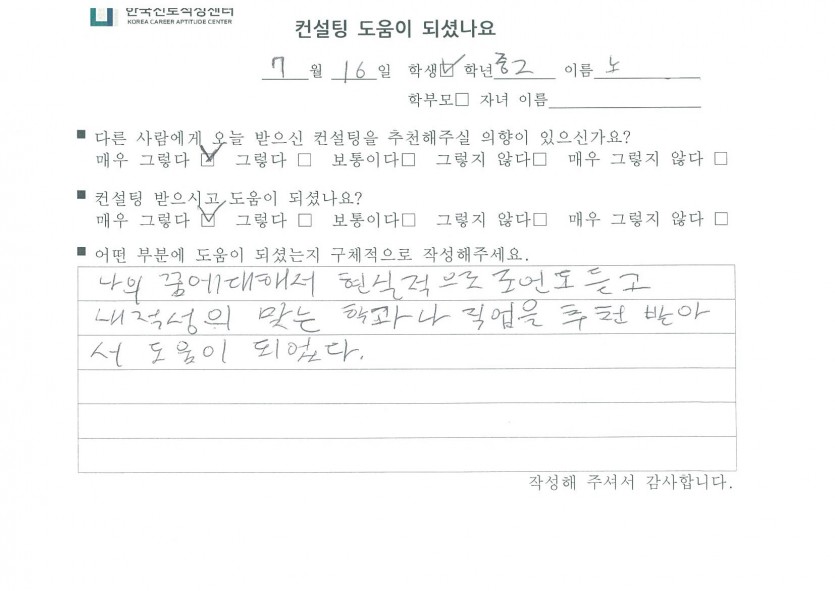 한국진로적성센터
KOREA CAREER APTITUDE CENTER
컨설팅 도움이 되셨나요
7월 16일 학생☑ 학년 중2 이름 노
학부모□ 자녀 이름
■ 다른 사람에게 오늘 받으신 컨설팅을 추천해주실 의향이 있으신가요?
매우 그렇다 ☑ 그렇다 □ 보통이다□ 그렇지 않다□ 매우 그렇지 않다 □
■ 컨설팅 받으시고 도움이 되셨나요?
매우 그렇다 ☑ 그렇다 □ 보통이다□ 그렇지 않다□ 매우 그렇지 않다 □
■ 어떤 부분에 도움이 되셨는지 구체적으로 작성해주세요.
나의 꿈에대해서 현실적으로 조언도 듣고
내적성의 맞는 학과나 직업을 추천 받아
서 도움이 되었다.
작성해 주셔서 감사합니다.